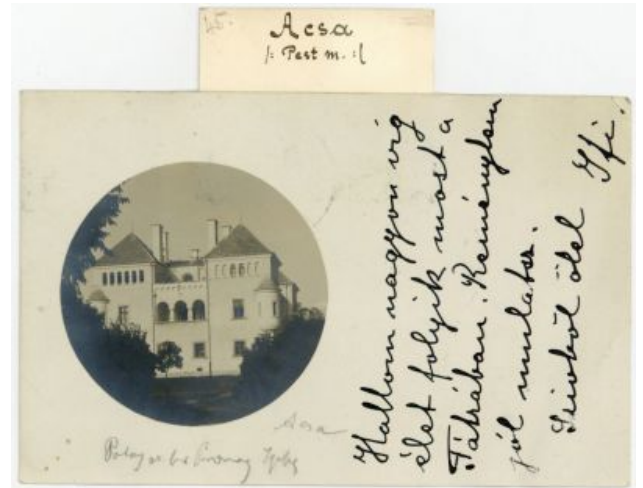 45.
Acsa
/: Pest m. :/
Hallom nagyon víg
élet folyik most a
Tátrában. Reménylem
jól mulatsz.
Szivből ölel Ifi.
Acsa